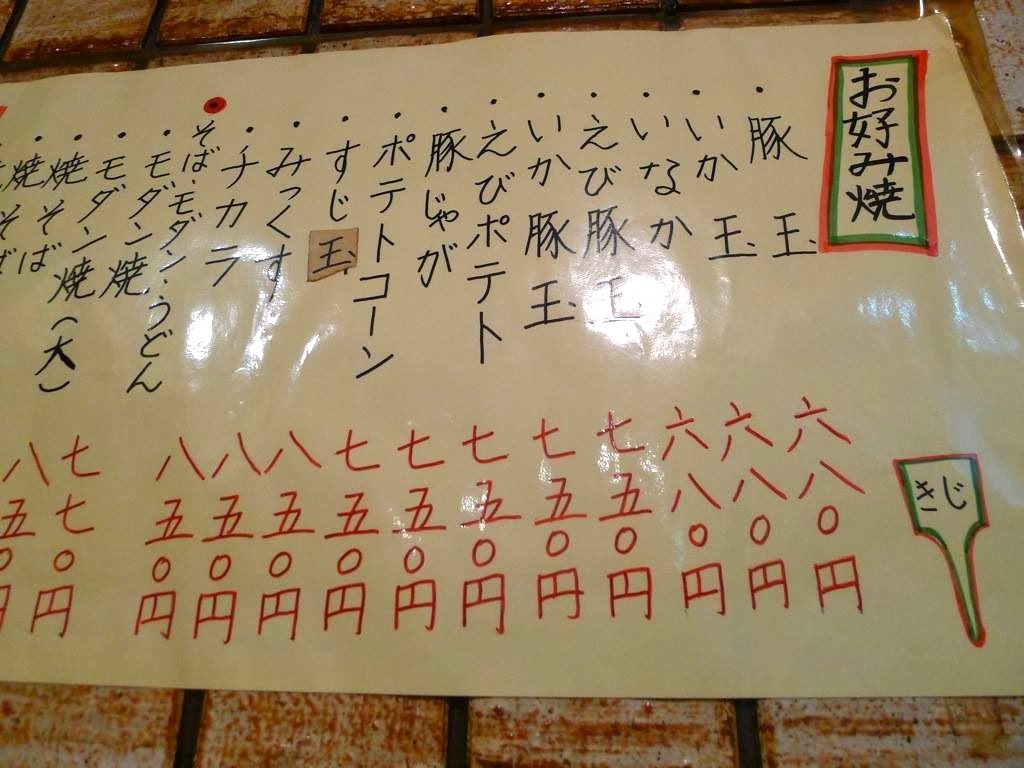 お好み焼
きじ
・豚玉 六八〇円
・いか玉 六八〇円
・いなか 六八〇円
・えび豚玉 七五〇円
・いか豚玉 七五〇円
・えびポテト 七五〇円
・豚じゃが 七五〇円
・ポテトコーン 七五〇円
・すじ玉 八五〇円
・みっくす 八五〇円
・チカラ 八五〇円
そば・モダン・うどん
・モダン焼 七七〇円
・モダン焼（大） 八五〇円
・焼そば
・焼そば